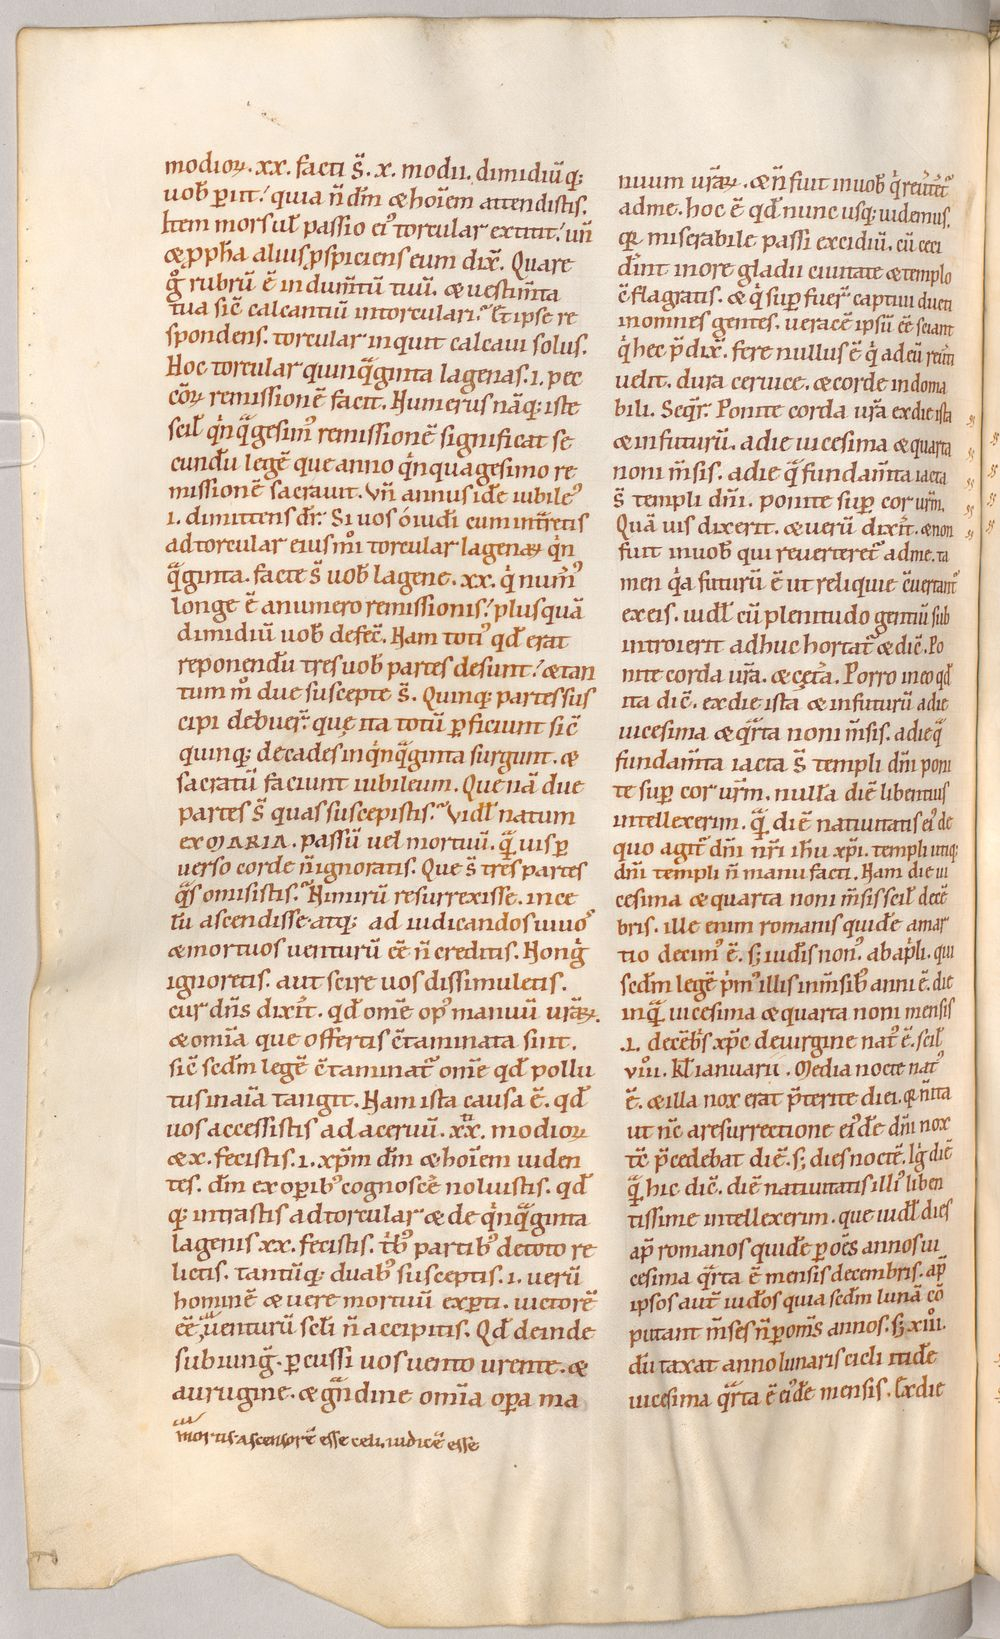 modioꝝ. xx. facti s̄. x. modii. dimidiū q;
uob̄ ꝑiit. quia n̄ dm̄ & hoīem attendistis.
Item mors ul̄ passio ei᾽ torcular extitit. un̄
& ꝓph̄a alius ꝓspiciens eum dix̄. Quare
g͛ rubrū ē indum̄tū tuū. & uestim̄ta
tua sic̄ calcantiū intorculari. Et ipse re
spondens. torcular inquit calcaui solus.
Hoc torcular quinq̄ginta lagenas. i. pec
cōꝝ remissionē facit. Numerus nāq; iste
scil̄ qͥnq̄gesim᾽ remissionē significat se
cundū legē que anno qͥnquagesimo re
missionē sacrauit. Vn̄ annus idē iubile᾽
.i. dimittens dr̄. Si uos ó iud̄i cum int̄retis
ad torcular eius m̊i torcular lagenaꝝ qͥn
q̄ginta. facte s̄ uob̄ lagene. xx. qͥ num᾽
longe ē a numero remissionis. plusquā
dimidiū uob̄ defec̄. Nam toti᾽ qd̄ erat
reponendū tres uob̄ partes desunt. & tan
tum m̊ due suscepte s̄. Quinq; partes sus
cipi debuer̄. que ita totū ꝑficiunt sic̄
quinq; decades in qͥnq̄ginta surgunt. &
sacratū faciunt iubileum. Que nā due
partes s̄ quas suscepistis. Vidl̄ natum
ex MARIA. passū uel mortuū. q̄ uis ꝑ
uerso corde n̄ ignoratis. Que s̄ tres partes
q̄s omisistis. Nimirū resurrexisse. in ce
lū ascendisse. atq; ad iudicandos uiuo᾽
& mortuos uenturū eē n̄ creditis. Non g͛
ignoretis. aut scire uos dissimuletis.
cur dn̄s dixit. qd̄ om̄e op᾽ manuū ur̄aꝝ.
& om̄ia que offertis c̄taminata sint.
sic̄ scdm̄ legē c̄taminat᾽ om̄e qd̄ pollu
tus in aīa tangit. Nam ista causa ē. qd̄
uos accessistis ad aceruū. xx. modioꝝ
& x. fecistis. i. xp̄m dm̄ & hoīem uiden
tes. dm̄ ex oꝑib᾽ cognoscē noluistis. qd̄
q; intrastis ad torcular & de qͥnq̄ginta
lagenis xx. fecistis. tͥb᾽ partib᾽ de toto re
lictis. tantūq; duab᾽ susceptis. i. uerū
hominē & uere mortuū exꝑti. uictorē
eē uenturū scl̄i n̄ accipitis. Qd̄ deinde
subiunḡ. ꝑcussi uos uento urente. &
aurugine. & gͣndine om̄ia oꝑa ma
mortis. ascensorē esse celi. iudicē esse
nuum ur̄aꝝ. & n̄ fuit in uob̄ qͥ reūtet᾽
ad me. hoc ē qd̄ nunc usq; uidemus.
qꝛ miserabile passi excidiū. cū ceci
dint in ore gladii ciuitate & templo
c̄flagratis. & qͥ suꝑ fuer̄ captiui ducti
in omnes gentes. ueracē ipsū eē sciant
qͥ hec p̄dix̄. fere nullus ē qͥ ad eū reūti
uelit. dura ceruice. & corde indoma
bili. Seqr̄. Ponite corda ur̄a ex die ista
& in futurū. a die uicesima & quarta
noni m̄sis. a die q̄ fundam̄ta iacta
s̄ templi dn̄i. ponite suꝑ cor ur̄m.
Quā uis dixerit. & uerū dixit. & non
fuit in uob̄ qui reuerteret᾽ ad me. ta
men qͥa futurū ē ut reliquie c̄uertant᾽
ex eis. uidl̄ cū plenitudo gentiū sub
introierit adhuc hortat᾽ & dic̄. Po
nite corda ur̄a. & cet̄a. Porro in eo qd̄
ita dic̄. ex die ista & in futurū a die
uicesima & q̄rta noni m̄sis. a die q̄
fundam̄ta iacta s̄ templi dn̄i poni
te suꝑ cor ur̄m. nullā diē libentius
intellexerim. q̄ diē natiuitatis ei᾽de
quo agit᾽ dn̄i nr̄i ih̄u xp̄i. templi utiq;
dn̄i templi n̄ manu facti. Nam die ui
cesima & quarta noni m̄sis scil̄ decē
bris. ille enim romanis quidē a mar
tio decim᾽ ē. s; iud̄is non᾽. ab apͥli. qui
scdm̄ legē pͥm᾽ illis in m̄sib̄ anni ē. die
inq̄ uicesima & quarta noni mensis
.i. decēbͥs xp̄c de uirgine nat᾽ ē. scil̄
viii. kl̄ ianuarii. Media nocte nat᾽
ē. & illa nox erat p̄terite diei. qꝛ n̄ ita
ut nc̄ a resurrectione ei᾽dē dn̄i nox
tc̄ p̄cedebat diē. s; dies noctē. Ig͛ diē
q̄ hic dic̄. diē natiuitatis illi᾽ liben
tissime intellexerim. que uidl̄ dies
ap̄ romanos quidē ꝑ oēs annos ui
cesima q̄rta ē mensis decembris. ap̄
ipsos aut̄ iud̄os quia scdm̄ lunā cō
putant m̄ses n̄ ꝑ om̄s annos. s; xiii.
dū taxat anno lunaris cicli itidē
uicesima q̄rta ē ei᾽dē mensis. Ex die